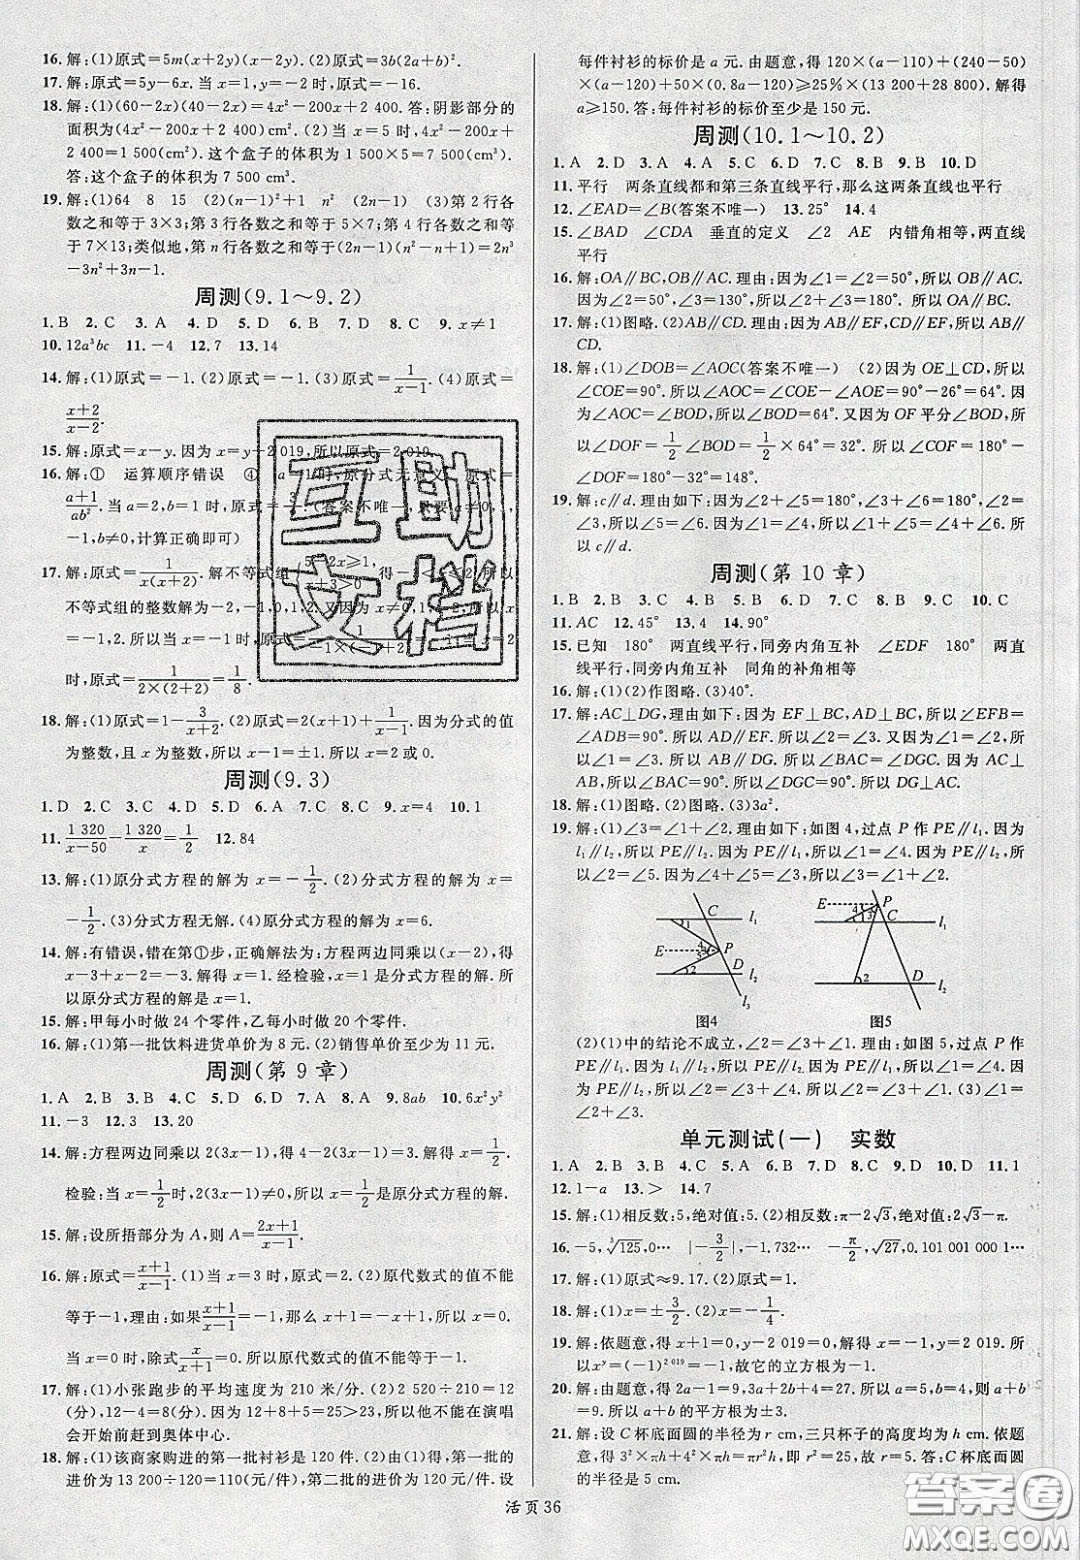 16. 解:(1)原式=5m(x+2y)(x-2y). (2)原式=3b(2a+b)².
17. 解:原式=5y-6x. 当 x=1,y=-2时,原式=-16.
18. 解:(1)(60-2x)(40-2x)=4x²-200x+2 400. 答:阴影部分的
面积为(4x²-200x+2 400)cm². (2)当 x=5 时,4x²-200x+
2 400=1 500(cm²). 这个盒子的体积为 1 500×5=7 500(cm³).
答:这个盒子的体积为 7 500 cm³.
19. 解:(1)64 8 15 (2)(n-1)²+1 n² (2n-1) (3)第 2 行各
数之和等于3×3;第 3 行各数之和等于 5×7;第 4 行各数之和
等于7×13;类似地,第 n 行各数之和等于(2n-1)(n²-n+1)=2n³
-3n²+3n-1.
周测(9.1～9.2)
1. B 2. C 3. A 4. D 5. D 6. B 7. D 8. C 9. x≠1
10. 12a³bc 11. -4 12. 7 13. 14
14. 解:(1)原式=-1. (2)原式=-1. (3)原式=1/(x-1). (4)原式=
(x+2)/(x-2).
15. 解:原式=x-y. 因为 x=y+2 019,所以原式=2 019.
16. 解:① 运算顺序错误 ④ a=1时,原分式无意义 原式=
(a+1)/ab². 当 a=2,b=1时,原式=3/2(答案不唯一,只要a≠0,1,
-1,b≠0,计算正确即可)
17. 解:原式=1/(x(x+2)). 解不等式组{5-2x≥1,x+3>0 得-3<x≤2,所以
不等式组的整数解为-2,-1,0,1,2. 又因为 x≠0,1,-2,所以 x
=-1,2. 所以当 x=-1时,原式=1/(-1×(-1+2))=-1;当 x=2
时,原式=1/(2×(2+2))=1/8.
18. 解:(1)原式=1-3/(x+2). (2)原式=2(x+1)+1/(x-1). 因为分式的值
为整数,且 x 为整数,所以 x-1=±1. 所以 x=2或 0.
周测(9.3)
1. D 2. C 3. C 4. D 5. D 6. A 7. C 8. C 9. x=4 10. 1
11. 1 320/(x-50)-1 320/x=1/2 12. 84
13. 解:(1)原分式方程的解为 x=-1/2. (2)原分式方程的解为 x=
-1/2. (3)分式方程无解. (4)原分式方程的解为 x=6.
14. 解:有错误,错在第①步,正确解法为:方程两边同乘以(x-2),得
x-3+x-2=-3. 解得 x=1. 经检验,x=1是分式方程的解. 所
以原分式方程的解是 x=1.
15. 解:甲每小时做 24 个零件,乙每小时做 20 个零件.
16. 解:(1)第一批饮料进货单价为 8 元. (2)销售单价至少为 11 元.
周测(第 9 章)
1. A 2. B 3. B 4. C 5. D 6. D 7. A 8. A 9. 8ab 10. 6x²y²
11. -3 12. 3 13. 20
14. 解:方程两边同乘以 2(3x-1),得 4-2(3x-1)=3. 解得 x=1/2.
检验:当 x=1/2时,2(3x-1)≠0. 所以 x=1/2是原分式方程的解.
15. 解:设所捂部分为 A,则 A=(2x+1)/(x-1).
16. 解:原式=(x+1)/(x-1). (1)当 x=3 时,原式=2. (2)原代数式的值不能
等于-1,理由:如果(x+1)/(x-1)=-1,那么 x+1=-x+1,所以 x=0.
当 x=0 时,除式x/(x+1)=0,所以原代数式的值不能等于-1.
17. 解:(1)小张跑步的平均速度为 210 米/分. (2)2 520÷210=12
(分),12-4=8(分). 因为 12+8+5=25>23,所以小张不能在演唱
会开始前赶到奥体中心.
18. 解:(1)该商家购进的第一批衬衫是 120 件. (2)由(1)得,第一批的
进价为 13 200÷120=110(元/件),第二批的进价为 120 元/件. 设
每件衬衫的标价是 a 元. 由题意,得 120×(a-110)+(240-50)
×(a-120)+50×(0.8a-120)≥25%×(13 200+28 800). 解得
a≥150. 答:每件衬衫的标价至少是 150 元.
周测(10.1～10.2)
1. A 2. D 3. A 4. A 5. C 6. D 7. C 8. B 9. B 10. D
11. 平行 两条直线都和第三条直线平行,那么这两条直线也平行
12. ∠EAD=∠B(答案不唯一) 13. 25° 14. 4
15. ∠BAD ∠CDA 垂直的定义 ∠2 AE 内错角相等,两直线
平行
16. 解:OA∥BC,OB∥AC. 理由:因为∠1=∠2=50°,所以 OB∥AC.
因为∠2=50°,∠3=130°,所以∠2+∠3=180°. 所以 OA∥BC.
17. 解:(1)图略. (2)AB∥CD. 理由:因为 AB∥EF,CD∥EF,所以 AB∥
CD.
18. 解:(1)∠DOB=∠AOC(答案不唯一) (2)因为 OE⊥CD,所以
∠COE=90°. 所以∠AOC=∠COE-∠AOE=90°-26°=64°. 因
为∠AOC=∠BOD,所以∠BOD=64°. 又因为 OF 平分∠BOD,所
以∠DOF=1/2∠BOD=1/2×64°=32°. 所以∠COF=180°-
∠DOF=180°-32°=148°.
19. 解:c∥d. 理由如下:因为∠2+∠5=180°,∠2+∠3=180°,所以∠5
=∠3,所以∠5=∠6. 因为∠4+∠5=180°,所以∠4+∠6=180°.
所以 c∥d.
周测(第 10 章)
1. B 2. B 3. C 4. B 5. B 6. D 7. B 8. C 9. C 10. C
11. AC 12. 45° 13. 4 14. 90°
15. 已知 180° 两直线平行,同旁内角互补 ∠EDF 180° 两直
线平行,同旁内角互补 同角的补角相等
16. 解:(1)(2)作图略. (3)40°.
17. 解:AC⊥DG,理由如下:因为 EF⊥BC,AD⊥BC,所以∠EFB=
∠ADB=90°. 所以 AD∥EF. 所以∠2=∠BAD. 因为∠1=∠2,所
以∠1=∠BAD. 所以 AB∥DG. 所以∠BAC=∠DGC. 因为 AC⊥
AB,所以∠BAC=90°. 所以∠DGC=90°. 所以 AC⊥DG.
18. 解:(1)图略. (2)图略. (3)3a².
19. 解:(1)∠3=∠1+∠2. 理由如下:如图 4,过点 P作PE∥l₁. 因为
l₁∥l₂,所以 PE∥l₂. 因为 PE∥l₁,所以∠1=∠4. 因为 PE∥l₂,所
以∠2=∠3-∠4. 所以∠2=∠3-∠1. 所以∠3=∠1+∠2.
C l₁
E P
D l₂
l₃
图4
E P
C l₁
D l₂
图5
(2)(1)中的结论不成立,∠2=∠1+∠3. 理由:如图 5,过点 P 作
PE∥l₁. 因为 l₁∥l₂,所以 PE∥l₂. 因为 PE∥l₁,所以∠1=∠4. 因
为 PE∥l₂,所以∠2=∠3+∠4. 所以∠2=∠3+∠1. (3)∠1=
∠2+∠3.
单元测试(一) 实数
1. A 2. B 3. D 4. D 5. A 6. D 7. B 8. B 9. C 10. D 11. 1
12. 1-a 13. > 14. 7
15. 解:(1)相反数:5,绝对值:5. (2)相反数:π-2√3,绝对值:2√3-π.
16. -5,³√125,0… |-3/2|,-1.732… -π/2,√27,0.101 001 000 1…
17. 解:(1)原式≈9.17. (2)原式=1.
18. 解:(1)x=±3/2. (2)x=-1/4.
19. 解:依题意,得 x+1=0,y-2 019=0,解得 x=-1,y=2 019. 所
以xʸ=(-1)²⁰¹⁹=-1,故它的立方根为-1.
20. 解:由题意,得 2a-1=9,3a+2b+4=27. 解得 a=5,b=4. 所以 a+b
=9. 所以 a+b 的平方根为±3.
21. 解:设 C杯底面圆的半径为 r cm,三只杯子的高度均为 h cm. 依题
意,得 3²×πh+4²×πh=πr²h,即 r²=25. 所以 r=5. 答:C杯底面圆
的半径是 5 cm.
活页 36
互助文档
答案圈
MXQE.COM